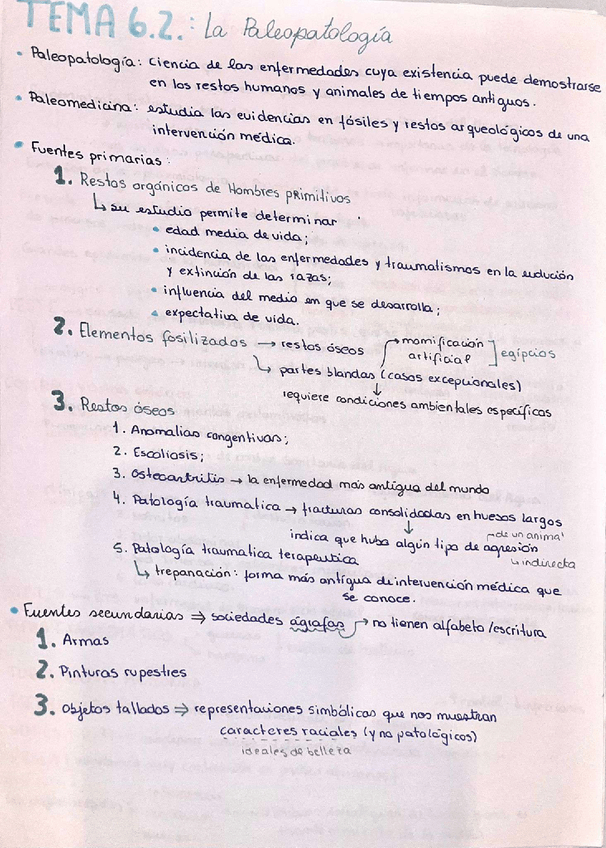 TEMA 6.2.: La Paleopatología
• Paleopatología: ciencia de las enfermedades cuya existencia puede demostrarse
en los restos humanos y animales de tiempos antiguos.
• Paleomedicina: estudia las evidencias en fósiles y restos arqueológicos de una
intervención médica.
• Fuentes primarias:
1. Restos orgánicos de Hombres primitivos
↳ su estudio permite determinar
• edad media de vida;
• incidencia de las enfermedades y traumatismos en la evolución
y extinción de las razas;
• influencia del medio en que se desarrolla;
• expectativa de vida.
2. Elementos fosilizados → restos óseos
→ momificación artificial ] egipcios
↳ partes blandas (casos excepcionales)
↓
requiere condiciones ambientales específicas
3. Restos óseos
1. Anomalías congentivas;
2. Escoliosis;
3. Osteoartritis → la enfermedad más antigua del mundo
4. Patología traumatica → fracturas consolidadas en huesos largos
↓
→ de un animal
indica que hubo algún tipo de agresión
↳ indirecta
5. Patología traumatica terapeutica
↳ trepanación: forma más antigua de intervención médica que
se conoce.
• Fuentes secundarias ⇒ sociedades ágrafas → no tienen alfabeto/escritura
1. Armas
2. Pinturas rupestres
3. Objetos tallados ⇒ representaciones simbólicas que nos muestran
caracteres raciales (y no patológicos)
ideales de belleza